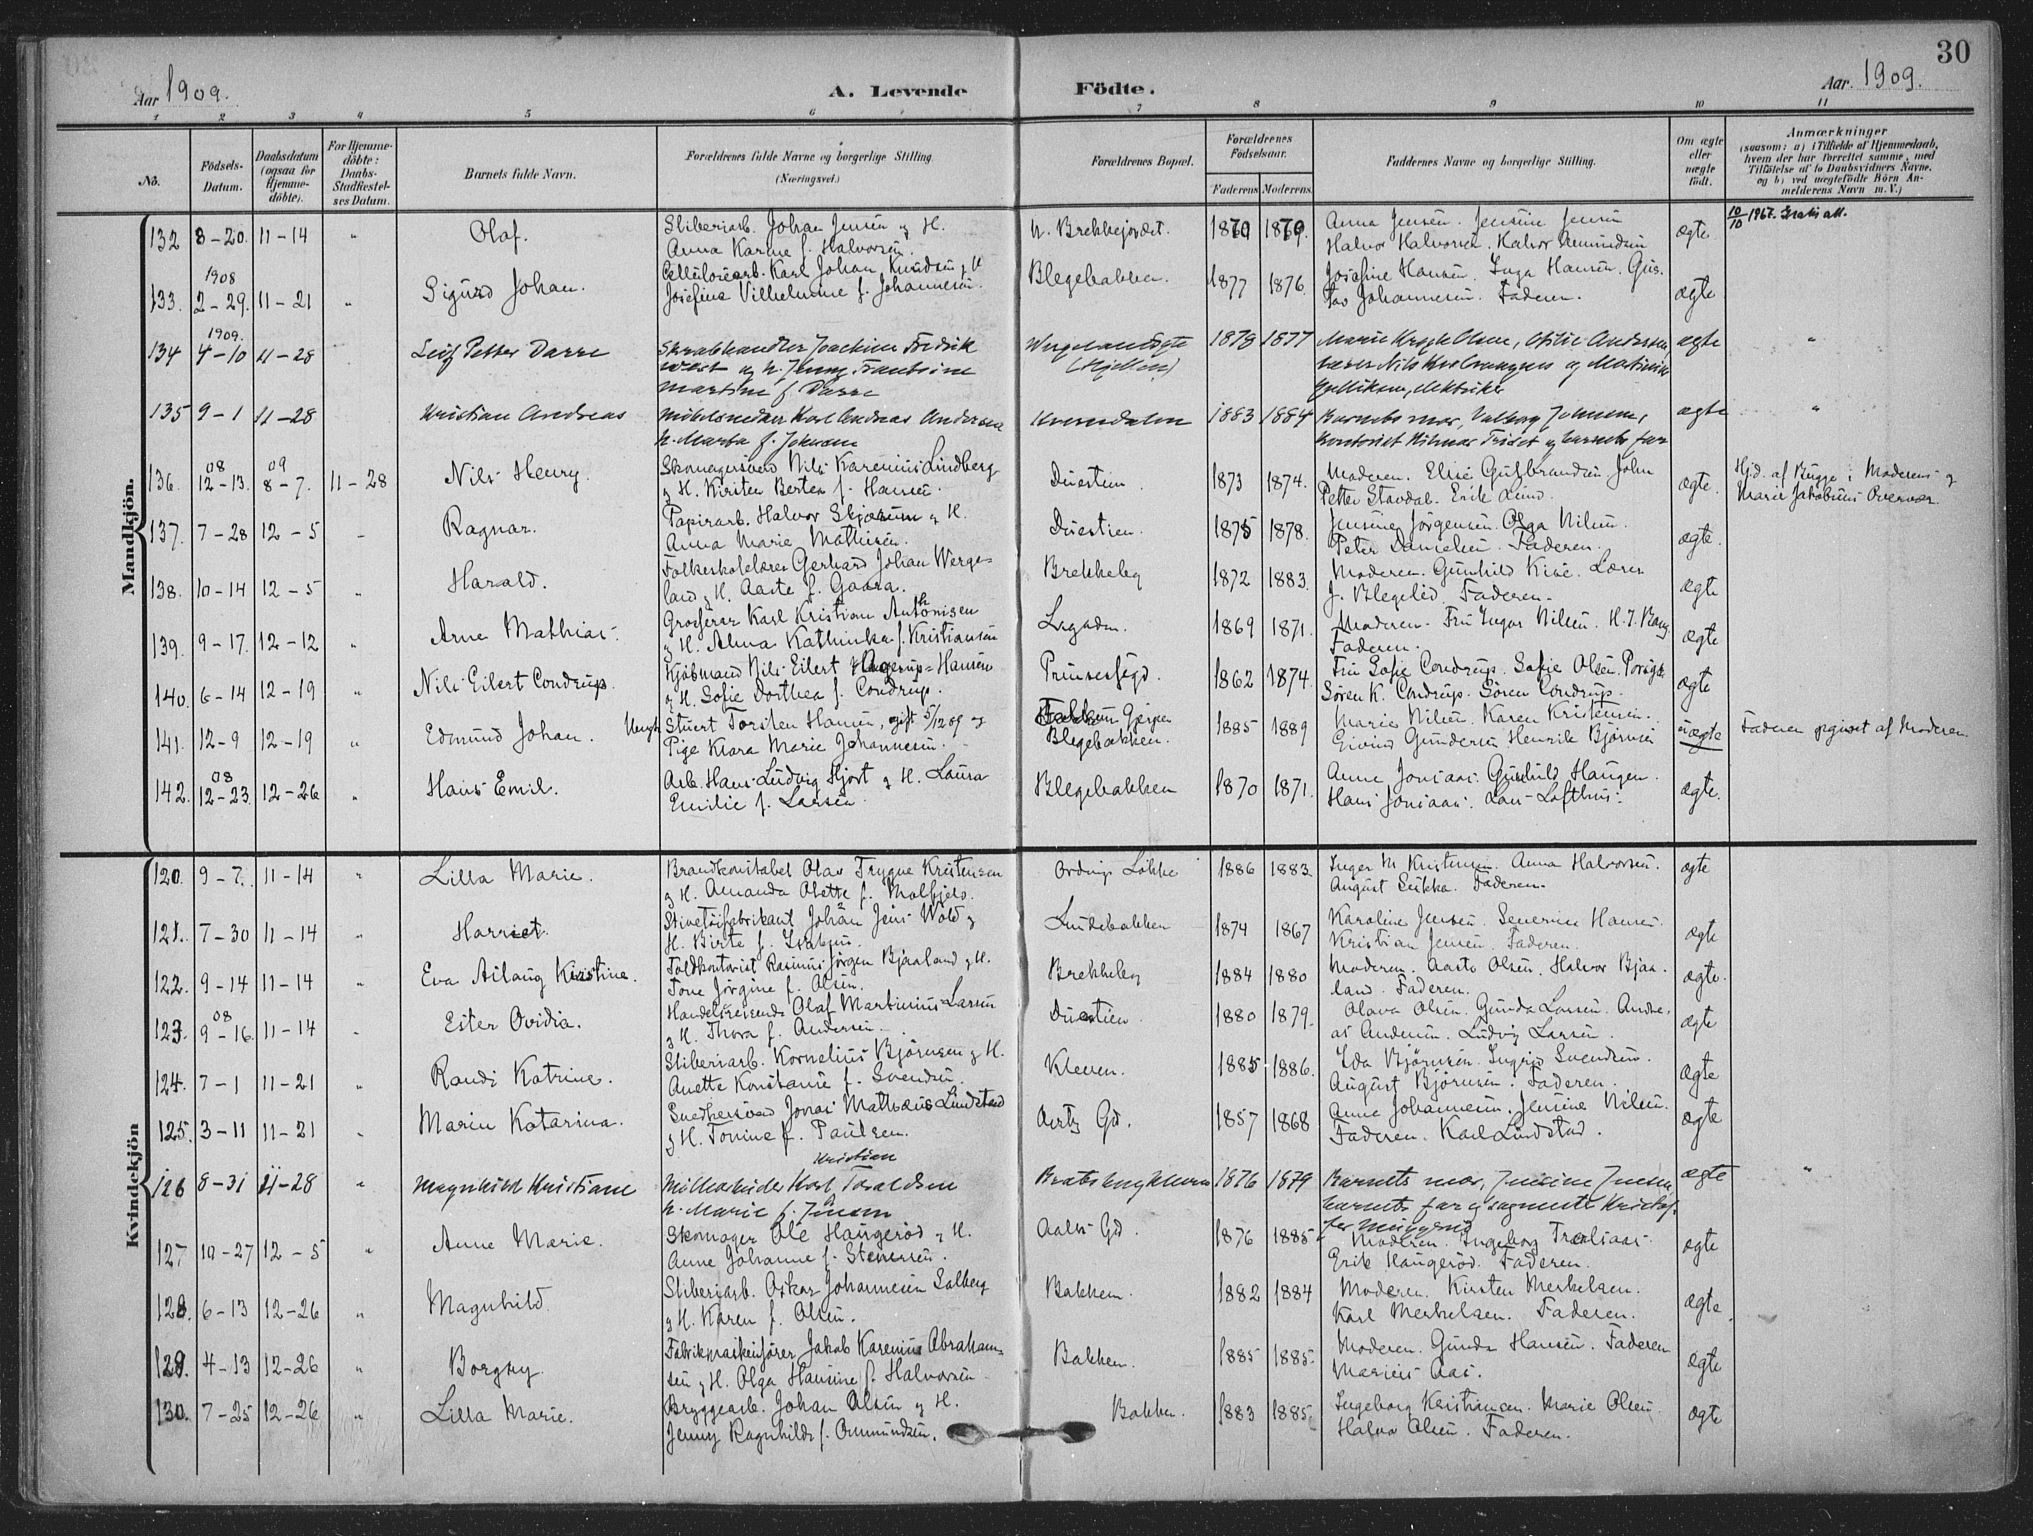 30
Aar 1909.
A. Levende Födte.
Aar. 1909.
1 2 3 4 5 6 7 8 9 10 11
No.
Födsels-
Datum.
Daabsdatum
(ogsaa for
Hjemme-
döbte).
For Hjemme-
döbte:
Daabs-
Stadfæstel-
ses Datum.
Barnets fulde Navn.
Forældrenes fulde Navne og borgerlige Stilling.
(Næringsvei.)
Forældrenes Bopæl.
Forældrenes
Födselsaar.
Faderens Moderens
Faddernes Navne og borgerlige Stilling.
Om ægte
eller
uægte
født.
Anmærkninger
(saasom: a) i Tilfælde af Hjemmedaab,
hvem der har forrettet samme, med
Tilföielse af to Daabsvidners Navne.
og b) ved uægtefödte Börn An-
melderens Navn m. V.)
Mandkjön.
132 8-20. 11-14 " Olaf. Sliberiarb. Johan Jensen og H. N. Brekkejordet. 1870 1869. Anna Jensen. Jensine Jensen ægte 10/10 1967. Gratis att.
Anna Karine f. Halvorsen. Halvor Halvorsen. Halvor Amundsen
1908
133. 2-29. 11-21 " Sigurd Johan. Cellulosearb. Karl Johan Knudsen og H Blegebakken. 1877 1876. Josefine Hansen. Inga Hansen. Gus-
Josefine Vilhelmine f. Johannesen. tav Johannesen. Faderen. ægte
1909.
134 4-10 11-28 Leif Petter Darre Skrabhandler Joachim Fredrik 1878 1877 Marie Krogh Olsen, Otilie Andersen, ægte "
og h. Jenny
Martine f. Darre
135 9-1 11-28 Kristian Andreas Karl Andreas Andersen 1883 1884 Barnets mor, Valborg Johnsen, ægte "
h. Marta f. Johnsen Kontorist Hilmar og barnets far
08 09
136. 12-13. 8-7. 11-28 Nils Henry. Skomagersvend Nils Karenius Lindberg Duestien 1873 1874. Moderen. Elise Gulbrandsen John ægte. Hjd. af Bugge; Moderens og
og H. Kirsten Berten f. Hansen. Petter Stavdal. Erik Lund. Marie Jakobine
137. 7-28 12-5 " Ragnar. Papirarb. Halvor Skjærum og H. Duestien. 1875 1878. Jensine Jörgensen. Olga Nilsen. ægte.
Anna Marie Mathisen. Peter Danielsen. Faderen.
138. 10-14 12-5 " Harald. Folkeskolelærer Gerhard Johan Werge- Brekkeby 1872 1883. Moderen. Gunhild Kise. Lærer ægte
land og H. Aaste f. Gaara. J. Blegelid. Faderen.
139. 9-17. 12-12 " Arne Mathias. Grosserer Karl Kristian Anthonisen 1869 1871. Moderen. Fru Inger Nilsen. H. J. Bang ægte
og H. Alma Kathinka f. Kristiansen Faderen.
140. 6-14 12-19 " Nils Eilert Condrup. Kjöbmand Nils Eilert Aagerup-Hansen Prinsessegd. 1862 1874. Fru Sofie Condrup. Sofie Olsen. ægte
og H. Sofie Dorthea f. Condrup. Sören K. Condrup. Sören Condrup.
141. 12-9 12-19 " Edmund Johan. Ungk. Stuert Torsten Hansen, gift 5/12 09 og Gjerpen 1885 1889 Marie Nilsen. Karen Kristensen. uægte Faderen opgivet af Moderen.
Pige Klara Marie Johannesen. Blegebakken. Eivind Gundersen Henrik Björnsen
08
142. 12-23. 12-26 " Hans Emil. Arb. Hans Ludvig Hjort og H. Laura Blegebakken 1870 1871. Anne Jonsaas. Gunhild Haugen. ægte.
Emilie f. Larsen. Hans Jonsaas. Lars Lofthus.
Kvindekjön
120. 9-7. 11-14 " Lilla Marie. Brandkonstabel Olav Trygve Kristensen Lökke 1886 1883 Inger M Kristensen. Anna Halvorsen. ægte
og H. Amanda Olette f. Malfjeld. August Seikka. Faderen.
121. 7-30 11-14 " Harriet. Stivetöifabrikant Johan Jens Wold og Lundebakken 1874 1867 Karoline Jensen. Severine Hansen. ægte
H. Birte f. Isaksen. Kristian Jensen. Faderen.
122. 9-14 11-14 " Eva Aslaug Kirstine. Toldkontorist Rasmus Jörgen Bjaaland og H. Brekkeby 1884 1880 Moderen. Aaste Olsen. Halvor Bjaa- ægte.
Tone Jörgine f. Olsen. land. Faderen.
08
123. 9-16. 11-14 " Ester Ovidia. Handelsreisende Olaf Martinius Larsen Duestien 1880 1879. Olava Olsen. Gunda Larsen. Andre- ægte
og H. Thora f. Andersen. as Andersen. Ludvig Larsen.
124. 7-1 11-21 " Randi Katrine. Sliberiarb. Kornelius Björnsen og H. Kleven. 1885 1886. Ida Björnsen. Ingrid Svendsen. ægte
Anette Konstanse f. Svendsen. August Björnsen. Faderen.
125. 3-11 11-21 " Marie Katarina. Smedkersvend Jonas Mathæus Lindstad Gd. 1857 1868 Anne Johannesen. Jensine Nilsen. ægte
og H. Tomine f. Paulsen. Faderen. Karl Lindstad.
Kristian
126 8-31 11-28 " Magnhild Kristiane Möllearbeider Karl Toraldsen Bratsbergkleven 1876 1879 Barnets mor, Jensine Jensen ægte "
h. Marie f. Jensen barnets far og
127. 10-27 12-5 " Anne Marie. Skomager Ole Haugeröd og H. Aalls Gd. 1876 1885 Moderen. Ingeborg ægte
Anne Johanne f. Stenersen. Erik Haugeröd. Faderen.
128. 6-13 12-26 " Magnhild. Sliberiarb. Oskar Johannesen Solberg Bakken. 1882 1884 Moderen. Kirsten Merkelsen. ægte
og H. Karen f. Olsen. Karl Merkelsen. Faderen.
129. 4-13 12-26 " Borghy. Fabrikmaskinfører Jakob Karenius Abraham- Bakken. 1885 1885. Moderen. Gunda Hansen. Faderen ægte
sen og H. Olga Hansine f. Halvorsen. Marius Aas.
130. 7-25 12-26 " Lilla Marie. Bryggearb. Johan Olsen og H. Bakken. 1883 1885. Ingeborg Kristiansen. Marie Olsen. ægte
Jenny Ragnhilde f. Ommundsen. Halvor Olsen. Faderen.